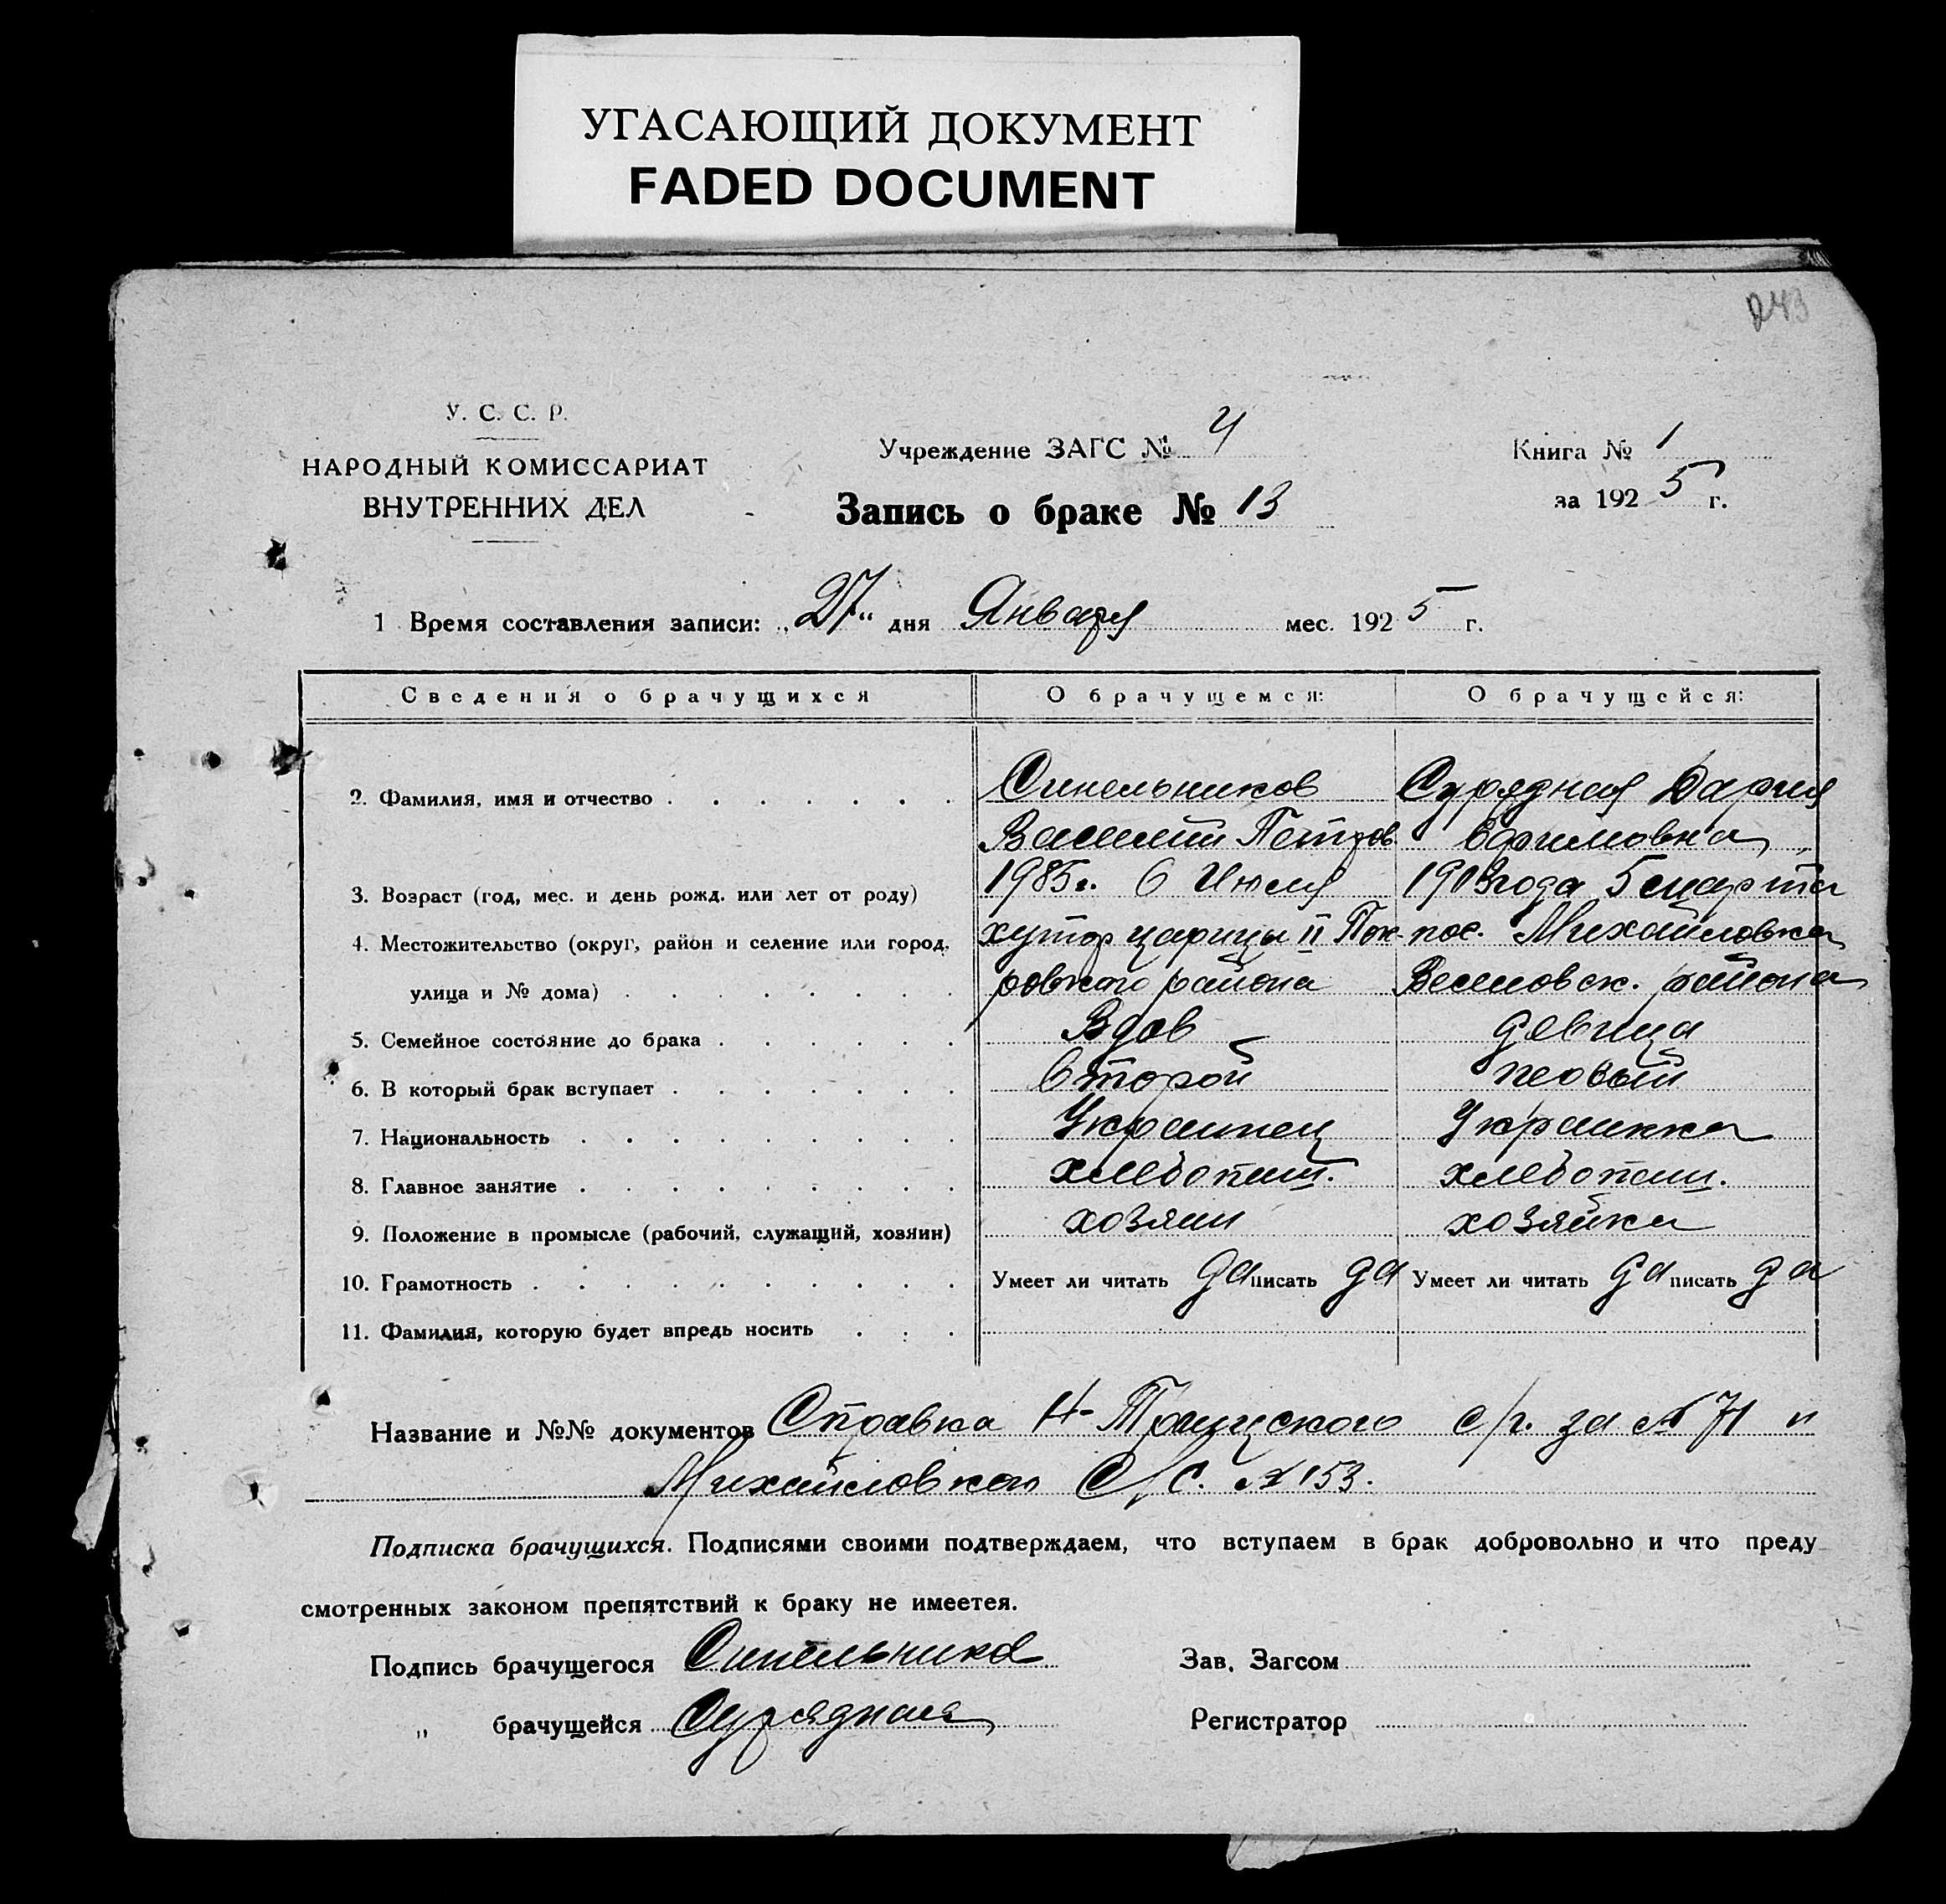 УГАСАЮЩИЙ ДОКУМЕНТ
FADED DOCUMENT
243
У. С. С. Р.
НАРОДНЫЙ КОМИССАРИАТ
ВНУТРЕННИХ ДЕЛ
Учреждение ЗАГС № 4
Запись о браке № 13
Книга № 1
за 1925 г.
1 Время составления записи: „27“ дня Января мес. 1925 г.
Сведения о брачущихся О брачущемся: О брачущейся:
2. Фамилия, имя и отчество Синельников Сурядная Дария
Василий Петров. Ефимовна
3. Возраст (год, мес. и день рожд. или лет от роду) 1985г. 6 Июля 1903 года 5 марта
4. Местожительство (округ, район и селение или город, хутор царицы II Пок- пос. Михайловка
улица и № дома) ровского района Веселовск. района
5. Семейное состояние до брака Вдов девица
6. В который брак вступает второй первый
7. Национальность Украинец Украинка
8. Главное занятие хлебопаш. хлебопаш.
9. Положение в промысле (рабочий, служащий, хозяин) хозяин хозяйка
10. Грамотность Умеет ли читать да писать да Умеет ли читать да писать да
11. Фамилия, которую будет впредь носить
Название и №№ документов Справка Н-Троицского с/г. за № 71 и
Михайловкого С/С. № 153.
Подписка брачущихся. Подписями своими подтверждаем, что вступаем в брак добровольно и что преду
смотренных законом препятствий к браку не имеетея.
Подпись брачущегося Синельников Зав. Загсом
„ брачущейся Сурядная Регистратор